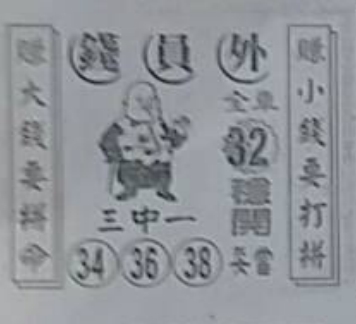 賺小錢要打拼
外員錢
全車
32
穩開
妥當
三中一
34 36 38
賺大錢要拼命